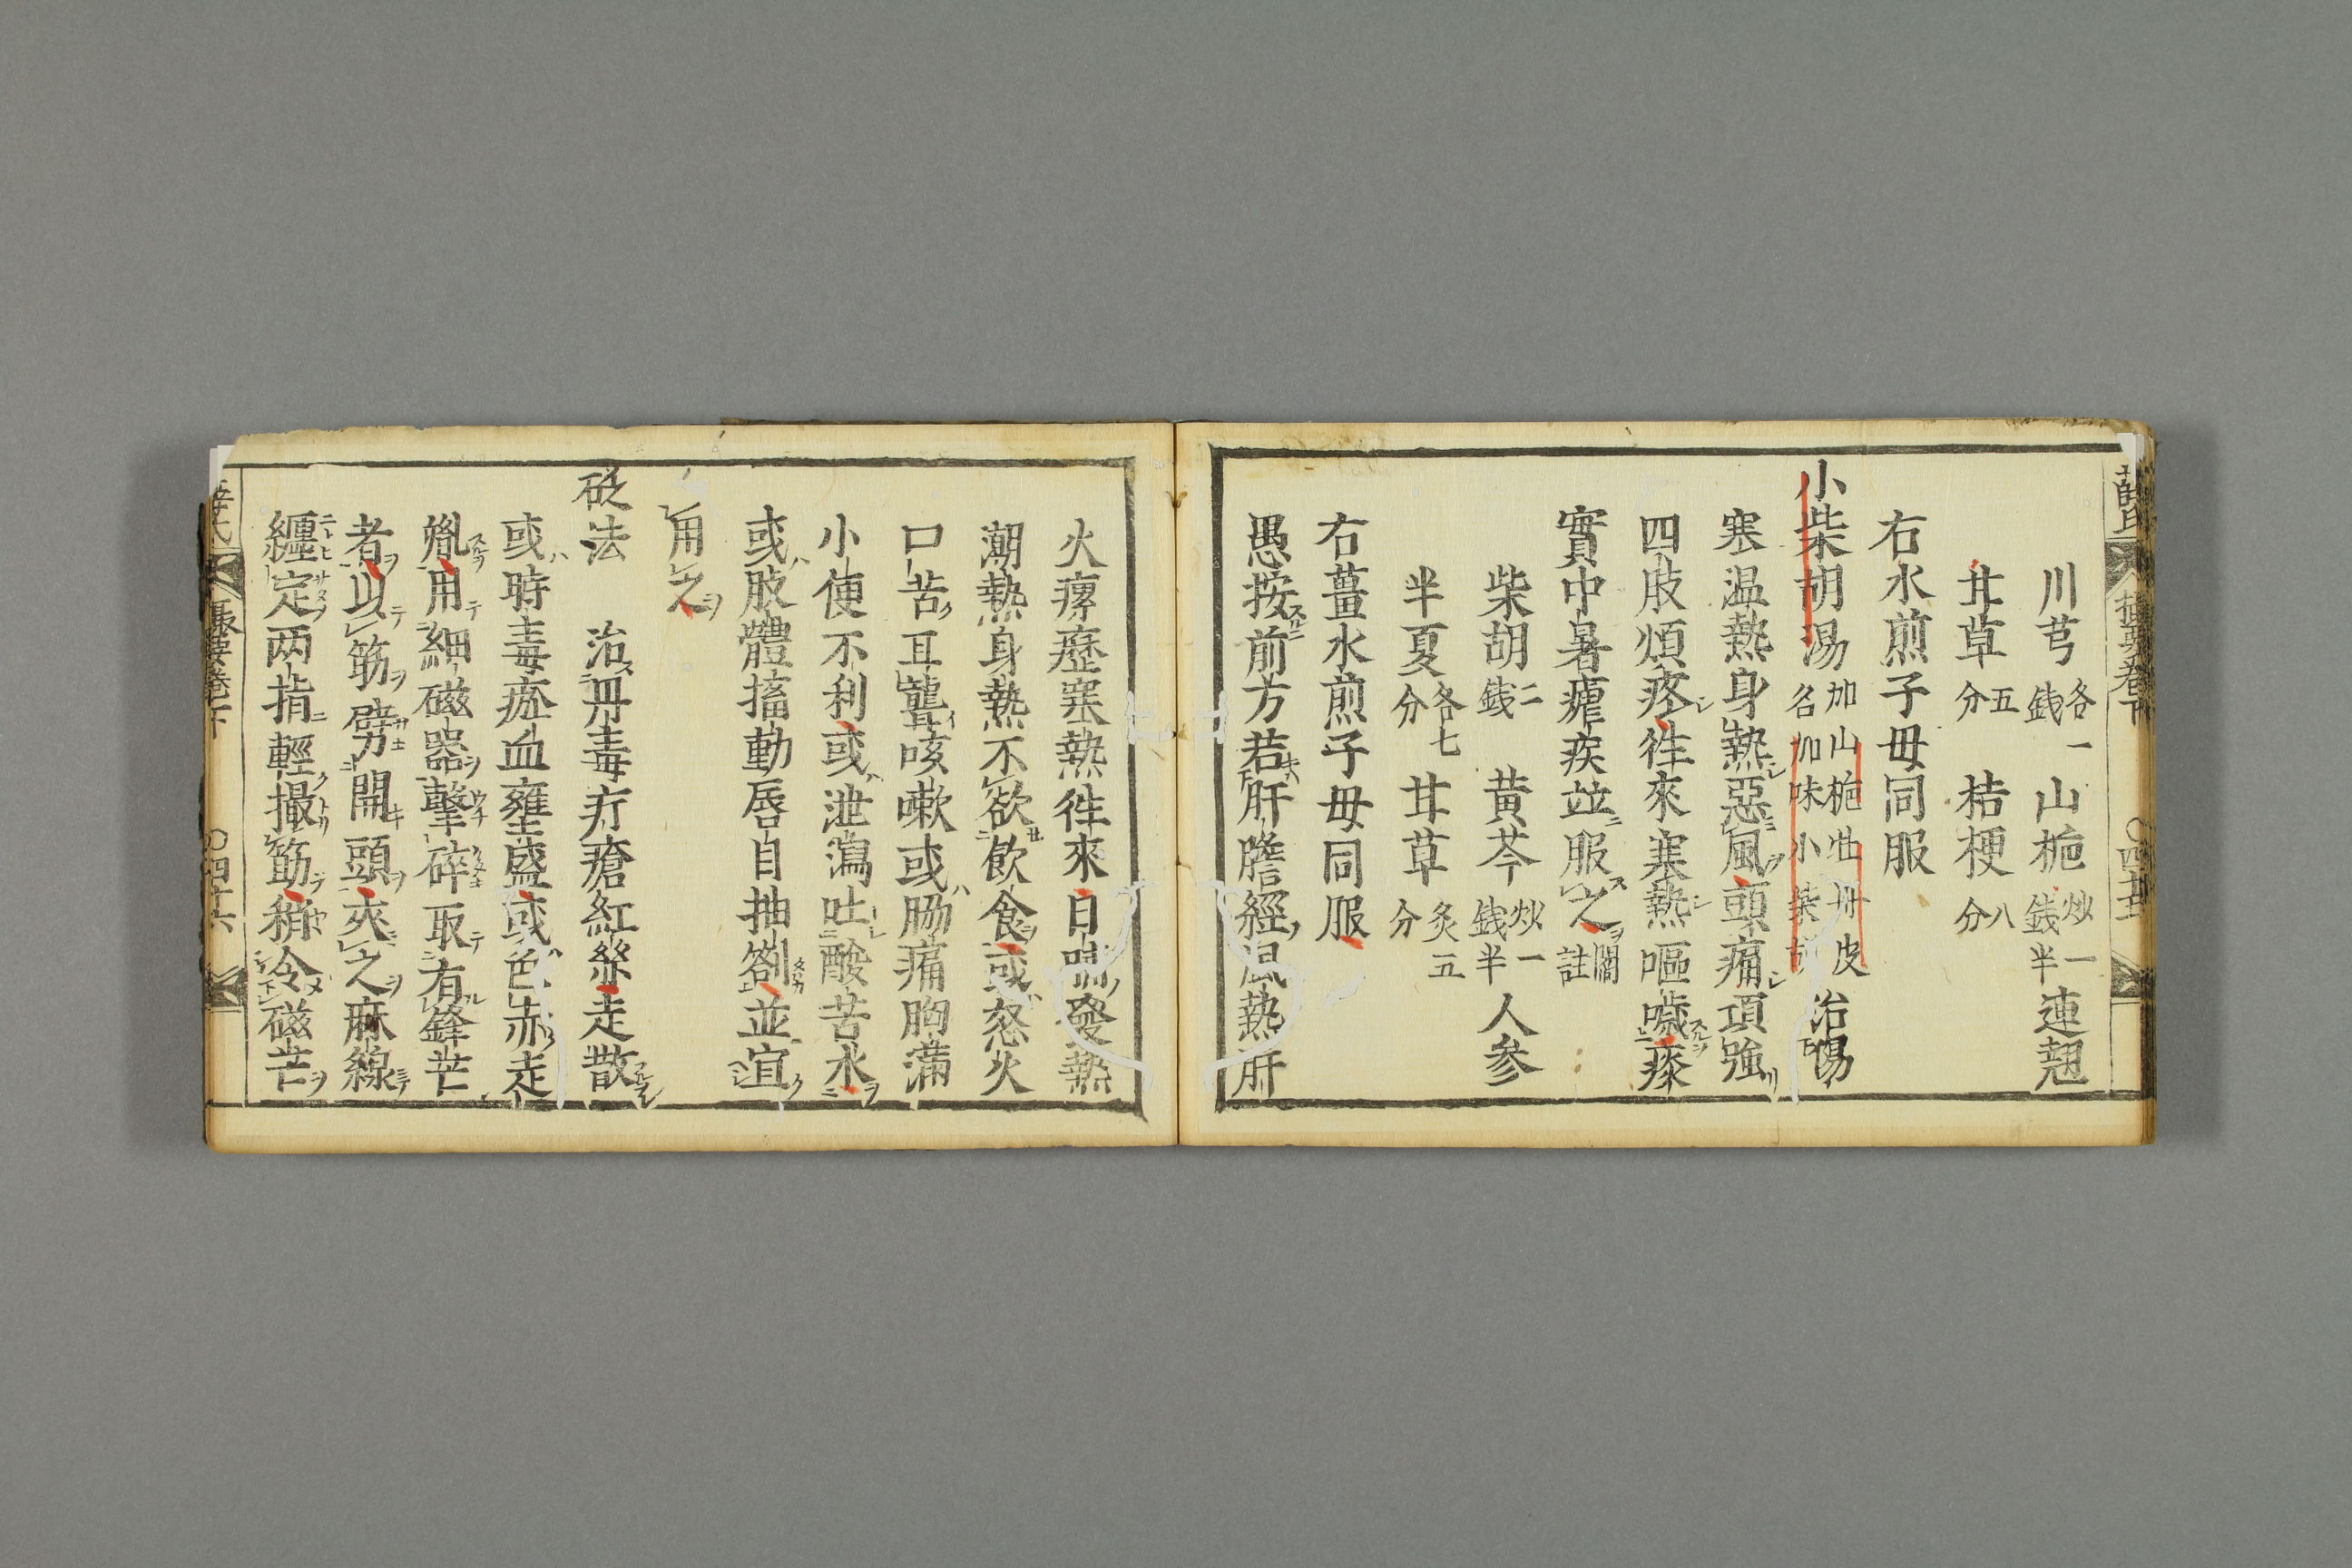 川芎各一錢 山梔炒一錢半 連翹
甘草五分 桔梗八分
右水煎子母同服
小柴胡湯加山梔牡丹皮名加味小柴胡 治傷
寒温熱身熱惡風頭痛項強
四肢煩疼徃來寒熱嘔噦痰
實中暑瘧疾竝服之閣註
柴胡二錢 黄芩炒一錢半 人参
半夏各七分 甘草炙五分
右薑水煎子母同服
愚按前方若肝膽經風熱肝
火瘰癧寒熱徃來日晡發熱
潮熱身熱不欲飲食或怒火
口苦耳聾咳嗽或脇痛胸滿
小便不利或泄瀉吐酸苦水
或肢體搐動唇目抽劄並宜
用之
砭法 治丹毒疔瘡紅絲走散
或時毒瘀血壅盛或色赤走
用細磁器擊碎取有鋒芒
者以筯劈開頭夾之麻線
纏定两指輕撮筯稍令磁芒